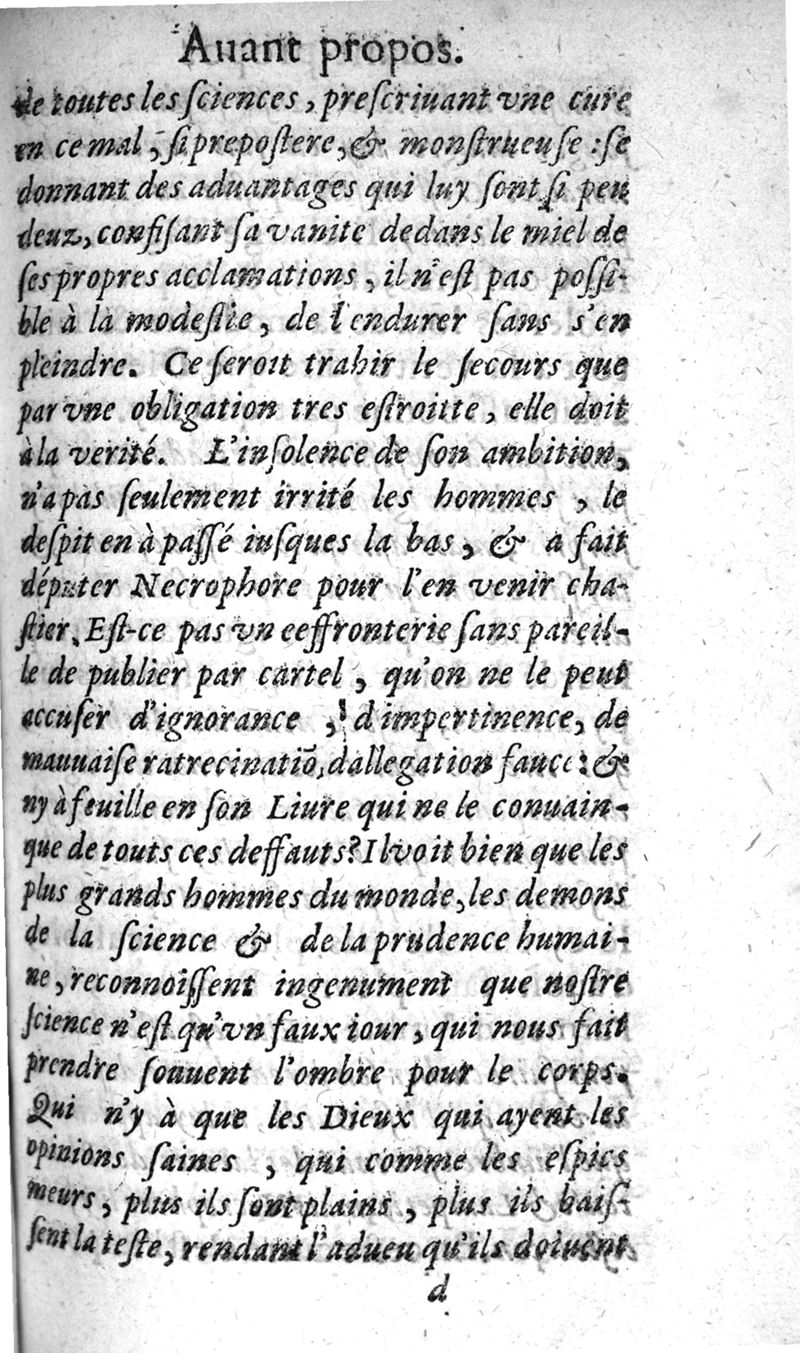 Auant propos.
de toutes les ſciences, preſcriuant vne cure
en ce mal, ſi prepoſtere, & monſtrueuſe : ſe
donnant des aduantages qui luy ſont ſi peu
deuz, confiſant ſa vanite dedans le miel de
ſes propres acclamations, il n'eſt pas poſſi-
ble à la modeſtie, de l'endurer ſans s'en
pleindre. Ce ſeroit trahir le ſecours que
par vne obligation tres eſtroitte, elle doit
à la verité. L'inſolence de ſon ambition,
n'a pas ſeulement irrité les hommes, le
deſpit en à paſſé iuſques la bas, & a fait
députer Necrophore pour l'en venir cha-
ſtier. Eſt-ce pas vn eeffronterie ſans pareil-
le de publier par cartel, qu'on ne le peut
accuſer d'ignorance, d'impertinence, de
mauuaiſe ratrecinatiõ, dallegation fauce : &
ny à feuille en ſon Liure qui ne le conuain-
que de touts ces deffauts? Il voit bien que les
plus grands hommes du monde, les demons
de la ſcience & de la prudence humai-
ne, reconnoiſſent ingenument que noſtre
ſcience n'eſt qu'vn faux iour, qui nous fait
prendre ſouuent l'ombre pour le corps.
Qui n'y à que les Dieux qui ayent les
opinions ſaines, qui comme les eſpics
meurs, plus ils ſont plains, plus ils baiſ-
ſent la teſte, rendant l'adueu qu'ils doiuent
d